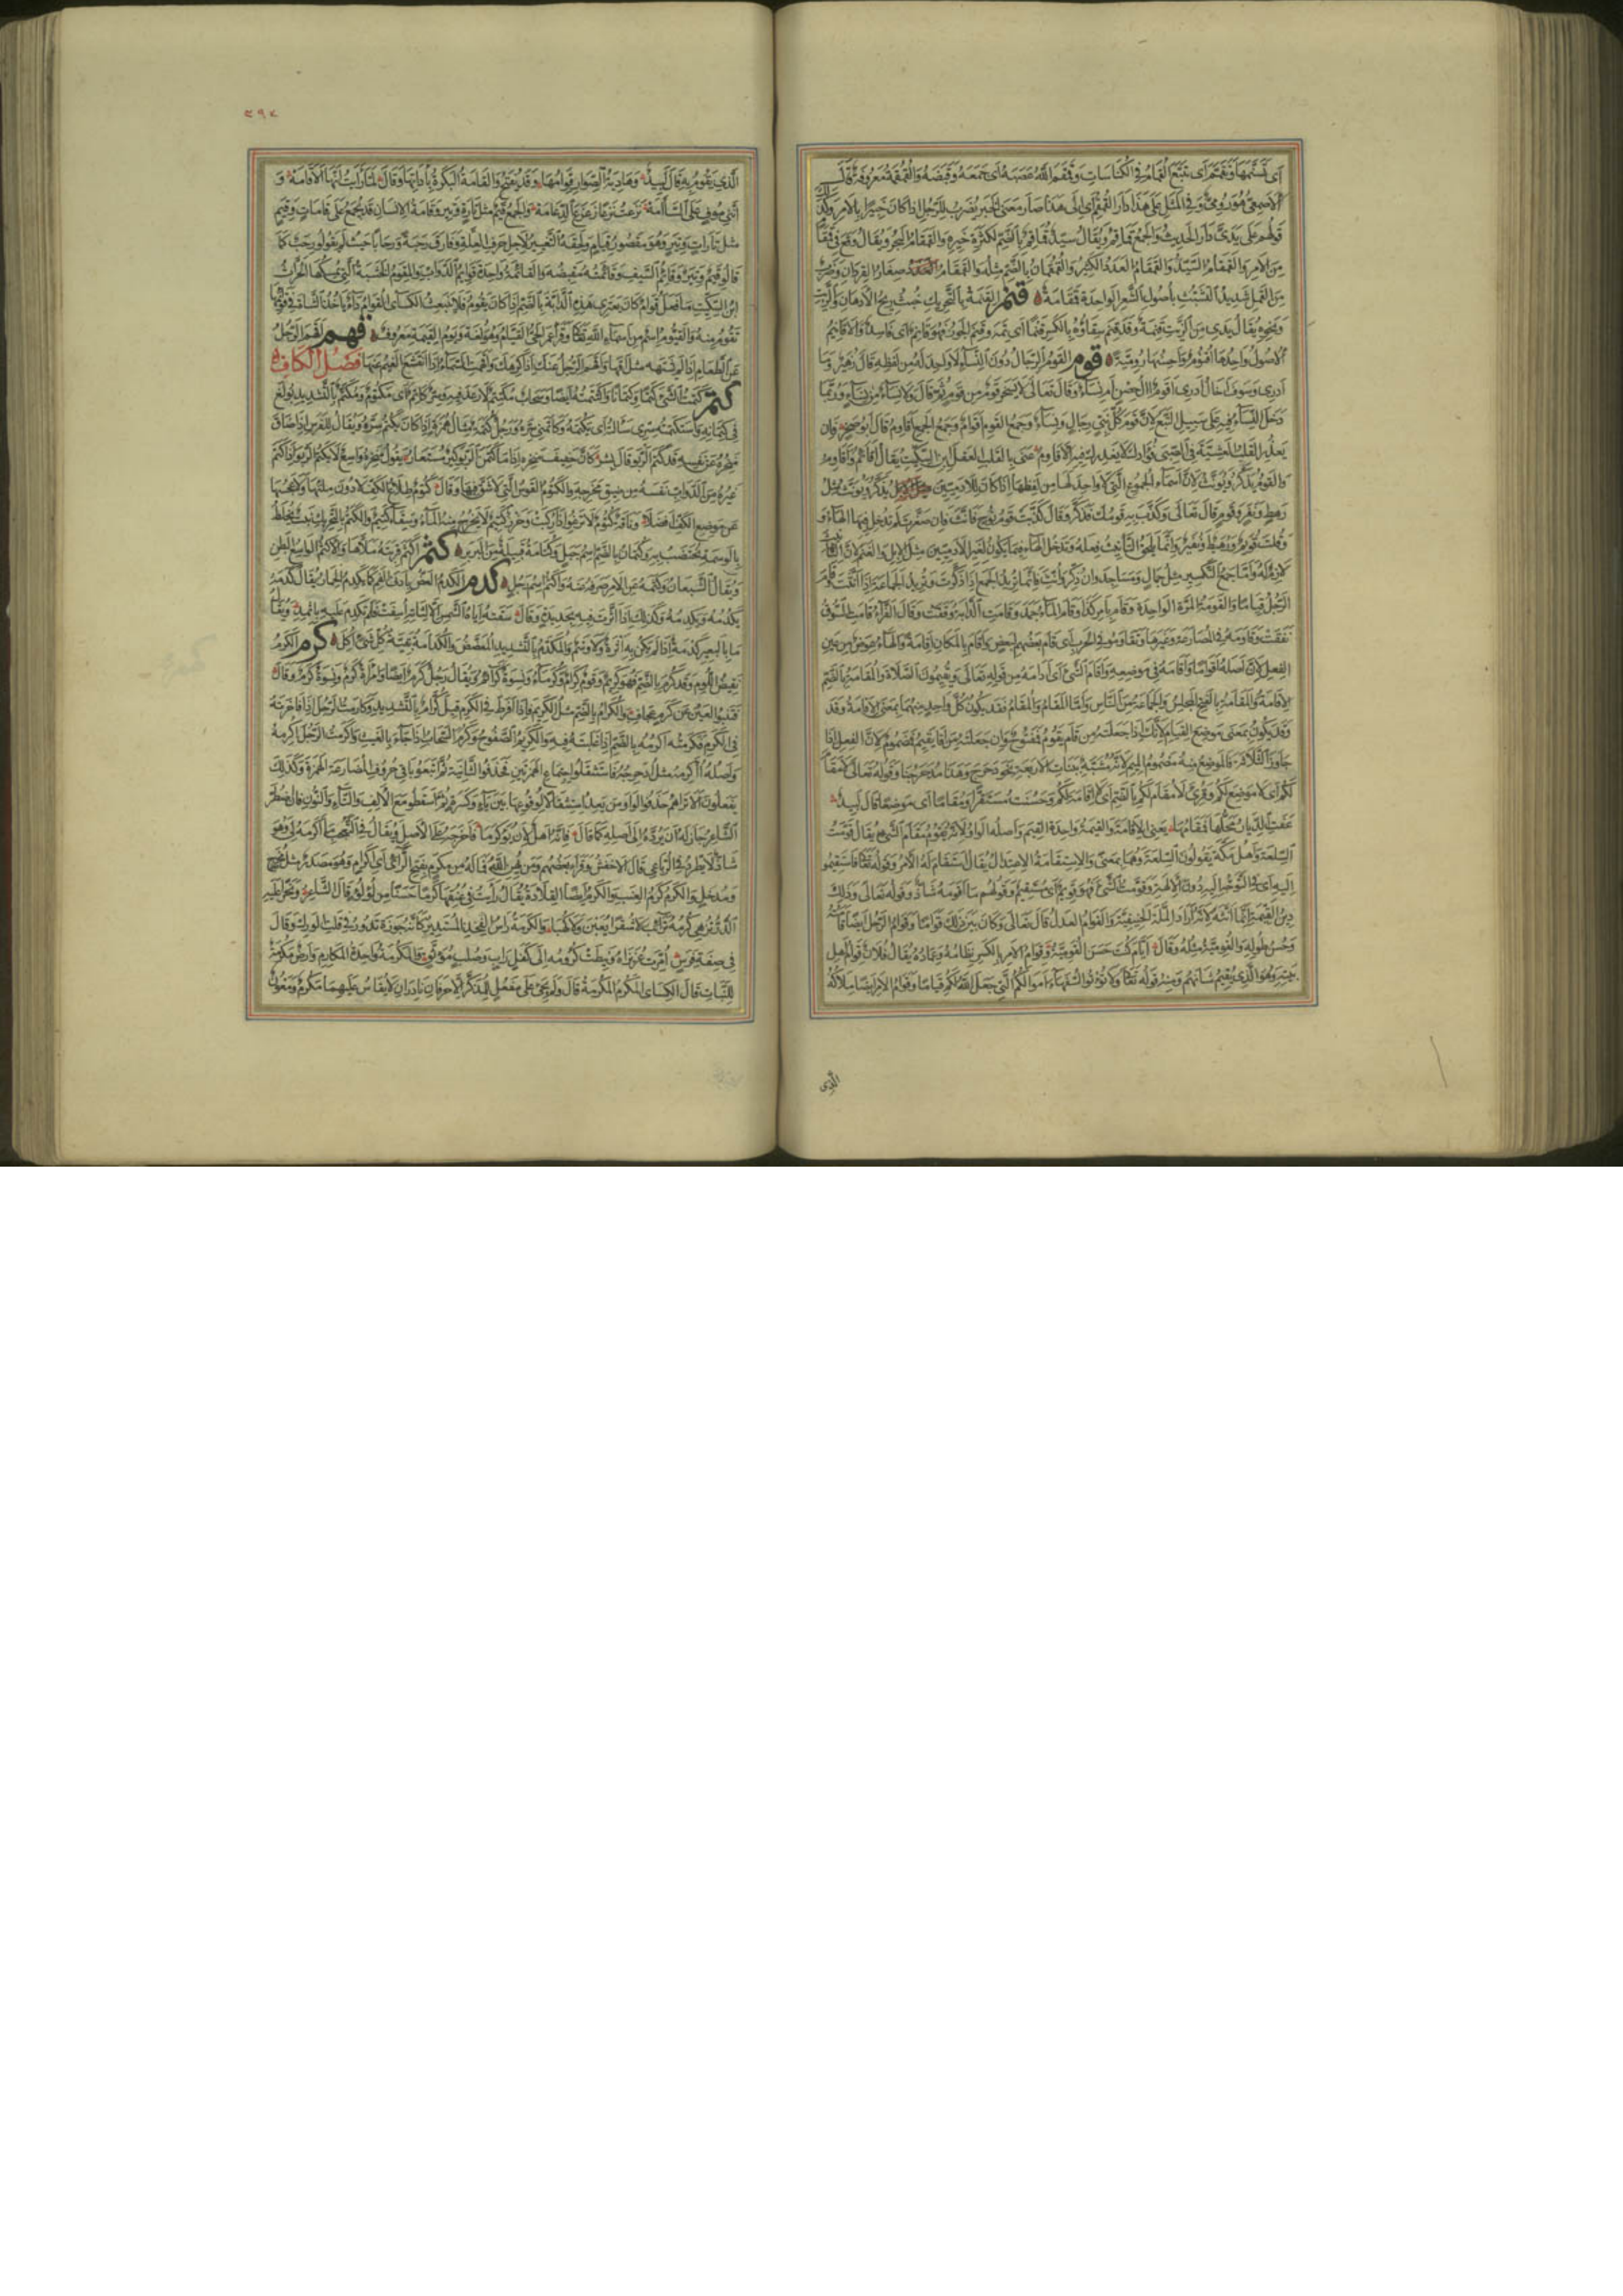 أي تسنمها وتقمم أي تتبع القمام في الكناسات وقمقم الله عصبه أي جمعه وقبضه والقمقمة معروفة قال
الأصمعي هو رومي وفي المثل على هذا دار القمقم أي إلى هذا صار معنى الخبر يضرب للرجل إذا كان خبيرا بالأمر وكذلك
قولهم على يدي دار الحديث والجمع قماقم ويقال سيد قماقم بالضم لكثرة خيره والقمقام البحر ويقال وقع في قمقام
من الأمر والقمقام السيد والقمقام العدد الكثير والقمقمان بالضم مثله والقمقام صغار القردان وضرب
من القمل شديد التشبث بأصول الشعر الواحدة قمقامة قنم القنمة بالتحريك خبث ريح الأدهان والزيت
ونحوه يقال يدي من الزيت قنمة وقد قنم سقاؤه بالكسر قنما أي تمه وقنم الجوز فهو قانم أي فاسد والأقانيم
الأصول واحدها أقنوم وأحسبها رومية قوم القوم الرجال دون النساء لا واحد له من لفظه قال زهير وما
أدري وسوف إخال أدري أقوم آل حصن أم نساء وقال تعالى لا يسخر قوم من قوم ثم قال ولا نساء من نساء وربما
دخل النساء فيه على سبيل التبع لأن قوم كل نبي رجال ونساء وجمع القوم أقوام وجمع الجمع أقاوم قال أبو صخر فإن
يعذر القلب العشية في الصبى فؤادك لا يعذرك فيه الأقاوم عنى بالقلب العقل ابن السكيت يقال أقائم وأقاوم
والقوم يذكر ويؤنث لأن أسماء الجموع التي لا واحد لها من لفظها إذا كان للآدميين يذكر ويؤنث مثل
رهط ونفر وقوم قال تعالى وكذب به قومك فذكر وقال كذبت قوم نوح فأنث فإن صغرت لم تدخل فيها الهاء و
وقلت قويم ورهيط ونفير وإنما يلحق التأنيث فعله وتدخل الهاء فيما يكون لغير الآدميين مثل الإبل والغنم لأن التأنيث
لازم له وأما جمع التكسير مثل جمال ومساجد وإن ذكر وأنث فإنما تريد الجمع إذا ذكرت وتريد الجماعة إذا أنثت وقام
الرجل قياما والقومة المرة الواحدة وقام بأمر كذا وقام الماء جمد وقامت الدابة وقفت وقال الفراء قامت السوق
نفقت وقاومه في المصارعة وغيرها وتقاوموا في الحرب أي قام بعضهم لبعض وأقام بالمكان إقامة والهاء عوض من عين
الفعل لأن أصله إقواما وأقامه في موضعه وأقام الشيء أي أدامه من قوله تعالى ويقيمون الصلاة والمقامة بالضم
الإقامة والمقامة بالفتح المجلس والجماعة من الناس وأما المقام والمقام فقد يكون كل واحد منهما بمعنى الإقامة وقد
وقد يكون بمعنى موضع القيام لأنك إذا جعلته من قام يقوم فمفتوح وإن جعلته من أقام يقيم فمضموم لأن الفعل إذا
جاوز الثلاثة فالموضع منه مضموم الميم لأنه مشبه ببنات الأربعة نحو دحرج وهذا مدحرجنا وقوله تعالى لا مقام
لكم أي لا موضع لكم وقرئ لا مقام لكم بالضم أي لا إقامة لكم وحسنت مستقرا ومقاما أي موضعا قال لبيد
عفت الديار محلها فمقامها يعني الإقامة والقيمة واحدة القيم وأصله الواو لأنه يقوم مقام الشيء يقال قومت
السلعة وأهل مكة يقولون السلعة وهما بمعنى والاستقامة الاعتدال يقال استقام له الأمر وقوله تعالى فاستقيموا
إليه أي في التوجه إليه دون الآلهة وقومت الشيء فهو قويم أي مستقيم وقولهم ما أقومه شاذ وقوله تعالى وذلك
دين القيمة إنما أنثه لأنه أراد الملة الحنيفية والقوام العدل قال تعالى وكان بين ذلك قواما وقوام الرجل أيضا قامته
وحسن طوله والقومية مثله وقال أيام كنت حسن القومية وقوام الأمر بالكسر نظامه وعماده يقال فلان قوام أهل
بيته وهو الذي يقيم شأنهم ومنه قوله تعالى ولا تؤتوا السفهاء أموالكم التي جعل الله لكم قياما وقوام الأمر أيضا ملاكه
الذي
٢٩٢
الذي يقوم به قال لبيد وهادية الصوار قوامها وقد يفتح والقامة البكرة بأداتها وقال لما رأيت أنها لا قامه و
أنني موف على السآمه نزعت نزعا زعزع الدعامه والجمع قيم مثل تارة وتير وقامة الإنسان قد يجمع على قامات وقيم
مثل تارات وتير وهو مقصور قيام ولحقه التغيير لأجل حرف العلة وفارق رحبة ورحابا حيث لم يقولوا رحب كما
قالوا قيم وتير وقائم السيف وقائمته مقبضه والقائمة واحدة قوائم الدواب والمقوم الخشبة التي يمسكها الحراث
ابن السكيت ما فعل قوام كان يعتري هذه الدابة بالضم إذا كان يقوم فلا ينبعث الكسائي القوام داء يأخذ الشاة في قوائمها
تقوم منه والقيوم اسم من أسماء الله تعالى وقرأ عمر الحي القيام وهو لغة ويوم القيمة معروف قهم أقهم الرجل
عن الطعام إذا لم يشتهه مثل أقهى وأقهم الرجل عنك إذا كرهك وأقهمت السماء إذا انقشع الغيم عنها فصل الكاف
كتم كتمت الشيء كتما وكتمانا واكتتمته أيضا وسحاب مكتتم لا رعد فيه وسر كاتم أي مكتوم ومكتم بالتشديد بولغ
في كتمانه واستكتمته سري سألته أي يكتمه وكاتمني سره ورجل كتمة مثال همزة إذا كان يكتم سره ويقال للفرس إذا ضاق
منخره عن نفسه قد كتم الربو قال بشر كأن حفيف منخره إذا ما كتمن الربو كير مستعار يقول منخره واسع لا يكتم الربو إذا كتم
غيره من الدواب نفسه من ضيق مخرجه والكتوم القوس التي لا شق فيها وقال كتوم طلاع الكف لا دون ملئها ولا عجسها
عن موضع الكف أفضلا وناقة كتوم لا ترغو إذا ركبت وخرز كتيم لا يخرج منه الماء وسقاء كتيم والكتم بالتحريك نبت يخلط
بالوسمة يختضب به وكتمان بالضم اسم جبل وكتامة قبيلة من البربر كثم أكثم قربته ملأها والأكثم الواسع البطن
ويقال الشبعان وكثمه عن الأمر صرفه عنه وأكثم اسم رجل كدم الكدم العض بأدنى الفم كما يكدم الحمار يقال كدمه
يكدمه ويكدمه وكذلك إذا أثرت فيه بحديدة وقال سقته إياة الشمس إلا لثاته أسف فلم تكدم عليه بإثمد ويقال
ما بالبعير كدمة إذا لم يكن به أثرة ولا وسم والمكدم بالتشديد المعضض والكدامة بقية كل شيء أكل كرم الكرم
نقيض اللؤم وقد كرم بالضم فهو كريم وقوم كرام وكرماء ونسوة كرائم ويقال رجل كرم أيضا وامرأة كرم ونسوة كرم وقال
فتنبو العين عن كرم عجاف والكرام بالضم مثل الكريم فإذا أفرط في الكرم قيل كرام بالتشديد وكارمت الرجل إذا فاخرته
في الكرم فكرمته أكرمه بالضم إذا غلبته فيه والكريم الصفوح وكرم السحاب إذا جاء بالغيث وأكرمت الرجل أكرمه
وأصله أأكرمه مثل أدحرجه فاستثقلوا اجتماع الهمزتين فحذفوا الثانية ثم أتبعوا باقي حروف المضارعة الهمزة وكذلك
يفعلون ألا تراهم حذفوا الواو من يعد استثقالا لوقوعها بين ياء وكسرة ثم أسقطوا مع الألف والتاء والنون فإن اضطر
الشاعر جاز له أن يرده إلى أصله كما قال فإنه أهل لأن يؤكرما فأخرجه على الأصل ويقال في التعجب ما أكرمه لي وهو
شاذ لا يطرد في الرباعي قال الأخفش وقرأ بعضهم ومن يهن الله فما له من مكرم بفتح الراء أي إكرام وهو مصدر مثل مخرج
ومدخل والكرم كرم العنب والكرم أيضا القلادة يقال رأيت في عنقها كرما حسنا من لؤلؤ قال الشاعر
والكرمة رأس الفخذ المستدير كأنه جوزة تدور في قلت الورك وقال
في صفة فرس أمرت عزيزاه ونيطت كرومه إلى كفل راب وصلب موثق والمكرمة واحدة المكارم وأرض مكرمة
للنبات قال الكسائي المكرم المكرمة قال ولم يجئ على مفعل للمذكر إلا حرفان نادران لا يقاس عليهما مكرم ومعون